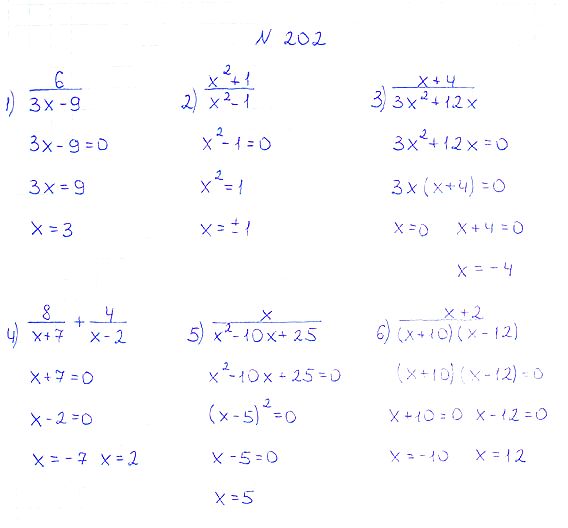 N 202
1) 6/(3x-9)
3x-9=0
3x=9
x=3
2) (x²+1)/(x²-1)
x²-1=0
x²=1
x=±1
3) (x+4)/(3x²+12x)
3x²+12x=0
3x(x+4)=0
x=0 x+4=0
x=-4
4) 8/(x+7) + 4/(x-2)
x+7=0
x-2=0
x=-7 x=2
5) x/(x²-10x+25)
x²-10x+25=0
(x-5)²=0
x-5=0
x=5
6) (x+2)/((x+10)(x-12))
(x+10)(x-12)=0
x+10=0 x-12=0
x=-10 x=12